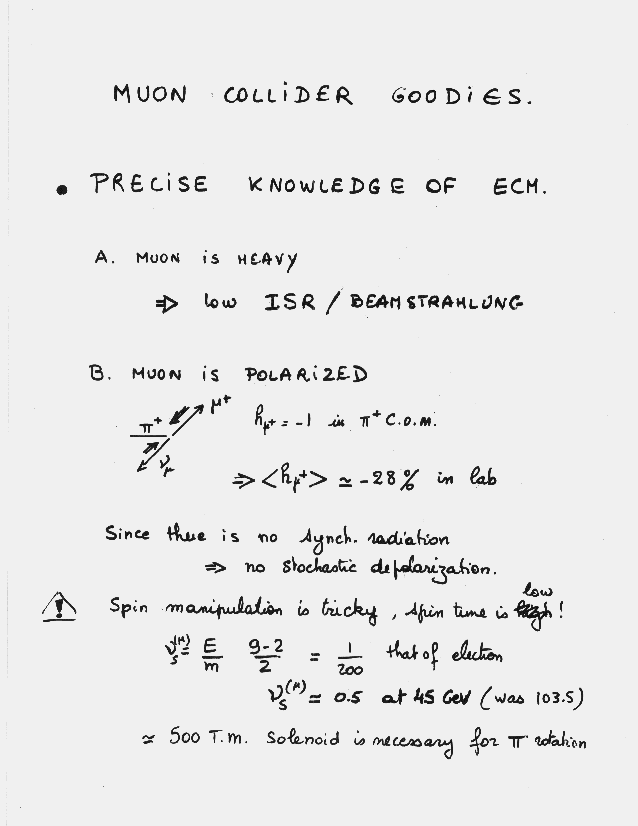 MUON COLLiDER GOODiES.
• PRECiSE KNOWLEDGE OF ECM.
A. MUON iS HEAVY
⇒ low ISR / BEAMSTRAHLUNG
B. MUON iS POLARiZED
π⁺ μ⁺ h_μ⁺ = -1 in π⁺ C.O.M.
ν_μ
⇒ <h_μ⁺> ≃ -28% in lab
Since there is no synch. radiation
⇒ no stochastic depolarization.
low
! Spin manipulation is tricky, spin tune is high!
ν_s^(μ) = E/m g-2/2 = 1/200 that of electron
ν_s^(μ) = 0.5 at 45 GeV (was 103.5)
≃ 500 T.m. Solenoid is necessary for π rotation